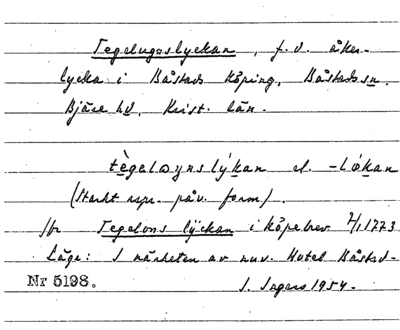 Tegelugnslyckan, f.d. åker-
lycka i Båstads köping, Båstads sn,
Bjäre hd, Krist. län.
tègelωgnslýkan el. -løkan
(starkt rspr. påv. form).
Tegelons lyckan i köpebrev 2/1 1773
Läge: I närheten av nuv. Hotel Båstad-
Nr 5198. J. Ingers 1954.